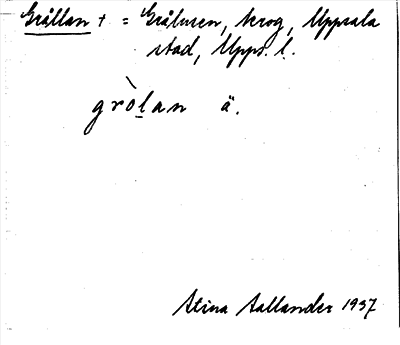 Grållan + = Gråluven, krog, Uppsala
stad, Upps. l.
gròlan ä.
Stina Sallander 1937